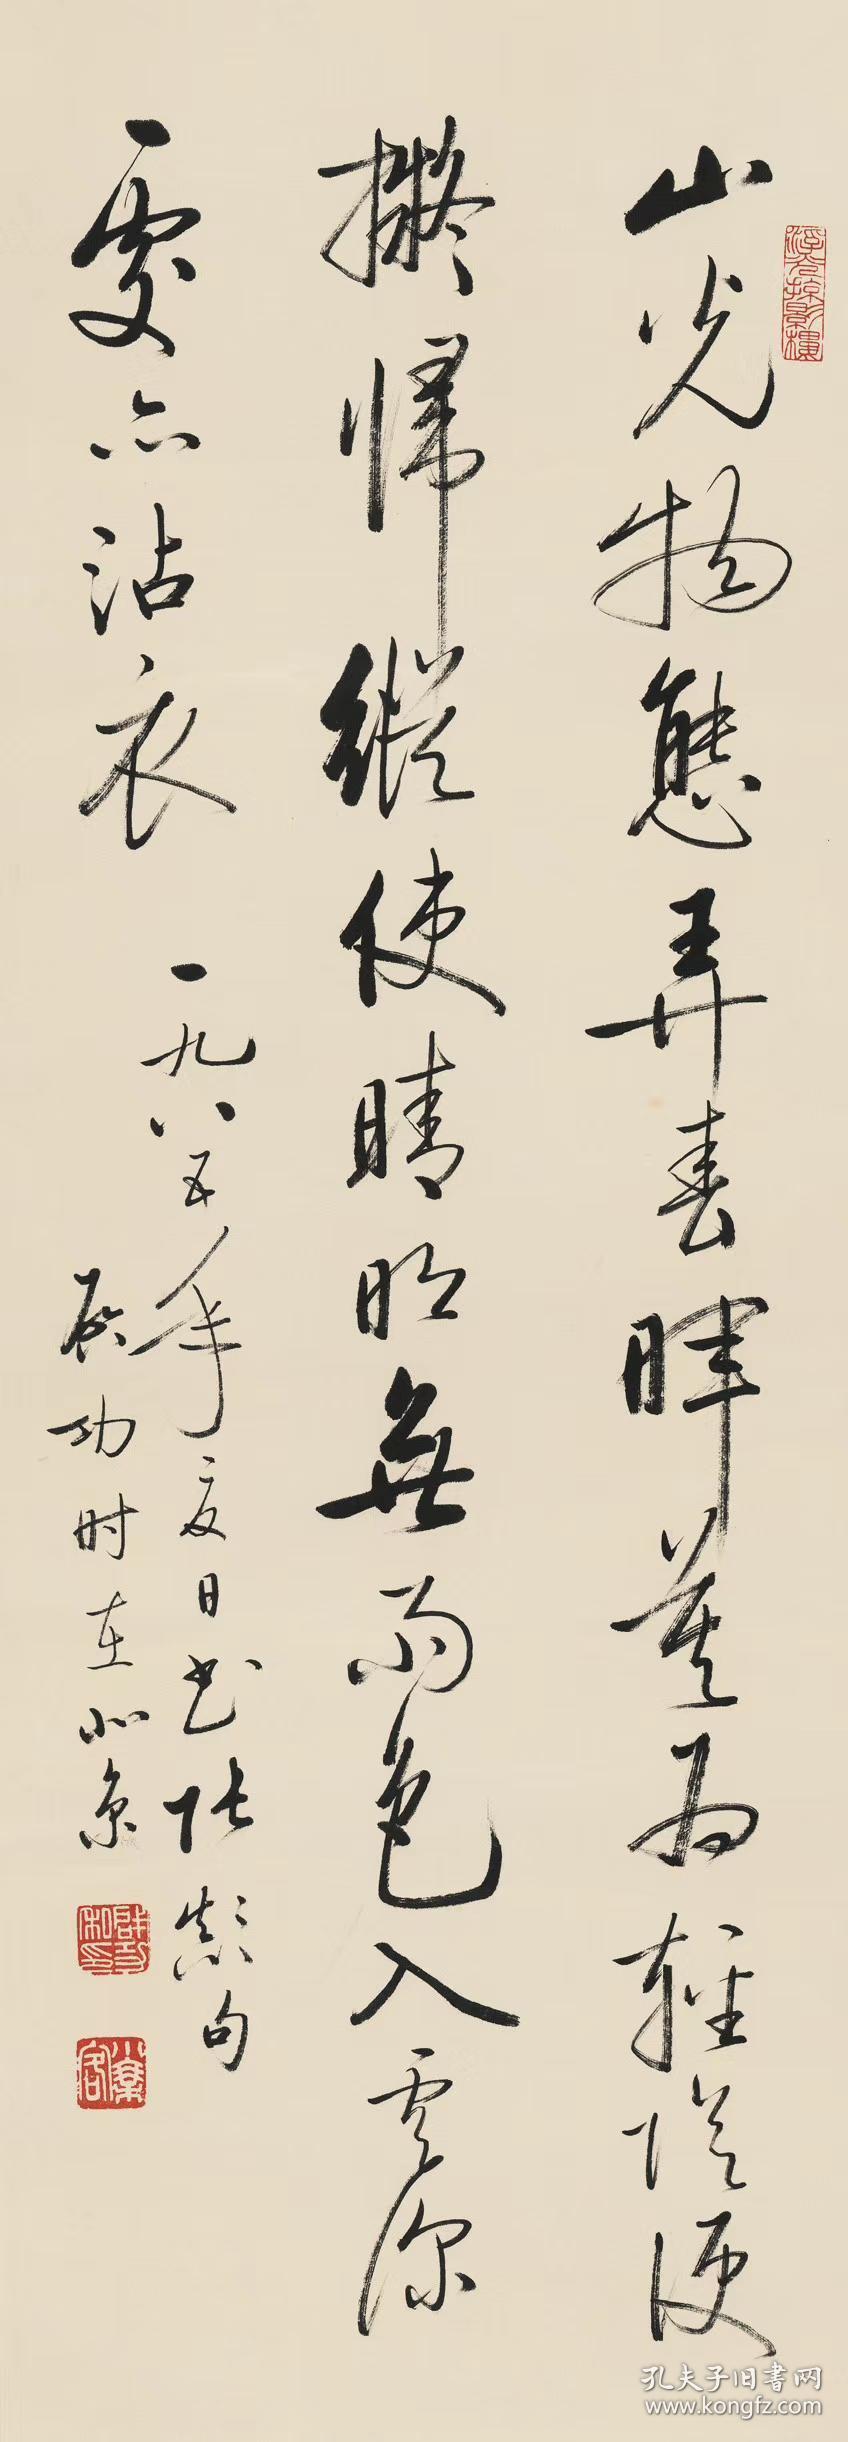 山光物態弄春暉莫為輕陰便
擬歸縱使晴明無雨色入雲深
處亦沾衣
一九八五年夏日書張顛句
啟功时在北京
孔夫子旧书网
www.kongfz.com